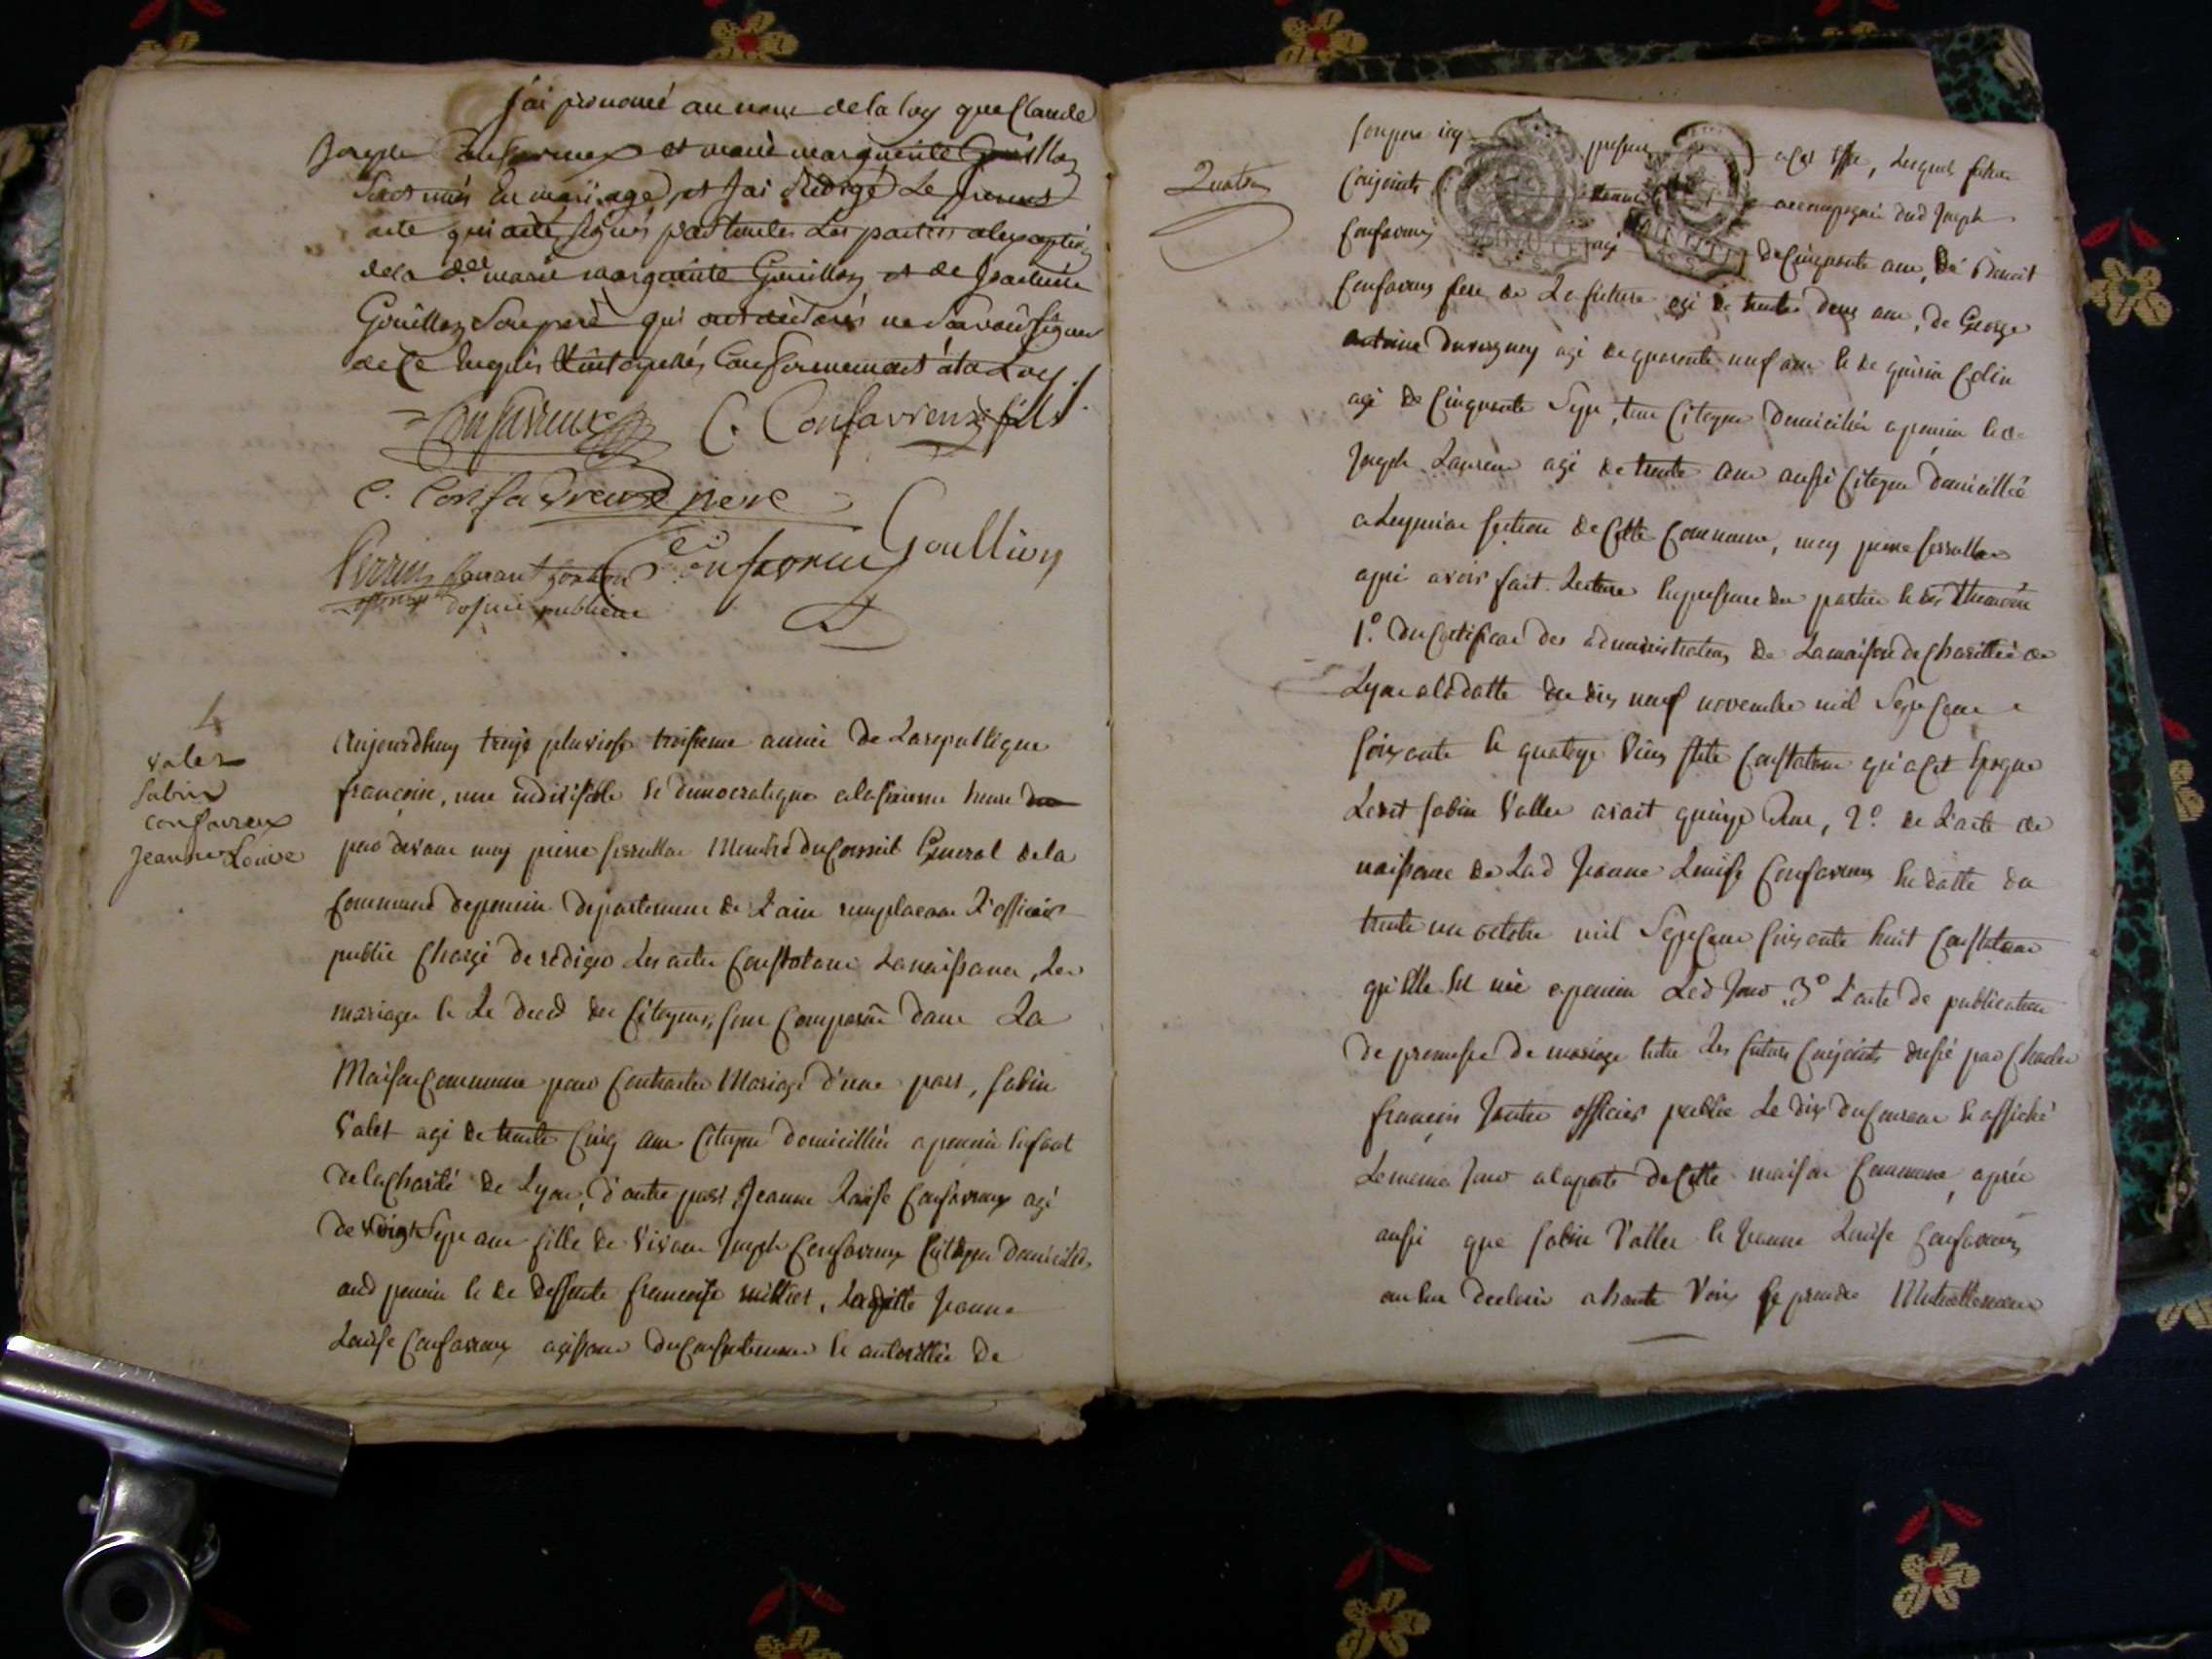 j'ai prononcé au nom de la loy que Claude
Joseph Confavreux et marie marguerite Gouillon
sont unis en mariage, et j'ai Rédigé Le present
acte qui a été signés par toutes Les parties a l'exception
de la dte marie marguerite Gouillon et de
Gouillon Son pere qui ont déclarés ne Savoir Signer
de ce enquis et interpellés conformement à la Loy ./.
Confavreux C. Confavreux fils
C. Confavreux pere
Perrin Confavreux Goullion
officier publique
4
valet
sabin
confavreux
jeanne Louise
Aujourdhuy treize pluviose troisieme année de La republique
françoise, une indivisible et democratique a la heure du
par devant moy pierre Membre du Conseil General de la
Commune de peronin departement de L'ain remplacant L'officier
public Chargé de rediger Les actes Constatant La naissance, Les
mariages et Le deces des Citoyens, sont Comparus dans La
Maison Commune pour Contracter Mariage d'une part, sabin
Valet agé de trente Cinq ans Citoyen domicillié a enfant
de la Charité de Lyon, d'autre part Jeanne Louise Confavreux agé
de vingt Sept ans fille de vivant Joseph Confavreux Citoyen domicilié
aud et de deffunte francoise, Laditte Jeanne
Louise Confavreux agissant du Consentement et autorittée de
Son pere icy present a cet effet, Lesquels futurs
Quatre
Conjoints accompagnés dud Joseph
Confavreux agé de Cinquante ans, de Benoit
Confavreux frere de La future agé de trente deux ans, de George
antoine agé de quarante neuf ans et de Colin
agé de Cinquante Sept, tous Citoyens domiciliés a et de
Joseph Laurent agé de trente ans aussi Citoyen domicillié
a section de Cette Commune, moy pierre
apres avoir fait Lecture en presence des parties et des temoins
1.° du Certificat des administrateurs de La maison de Charittée de
Lyon a la datte du dix neuf novembre mil Sept Cent
soixante et quatorze Constatant qu'a Cet epoque
Ledit Sabin Vallet avait quinze ans, 2.° de L'acte de
naissance de Lad Jeanne Louise Confavreux en datte du
trente un octobre mil Sept Cent soixante huit Constatant
qu'elle est née a Led Jour. 3.° L'acte de publication
de promesse de mariage entre Les futurs Conjoints dressé par Charles
françois officier public Le dix du Courant et affiché
Le meme Jour a la porte de Cette maison Commune, après
aussi que Sabin Vallet et Jeanne Louise Confavreux
ont eu declaré a haute Voix se prendre Mutuellement